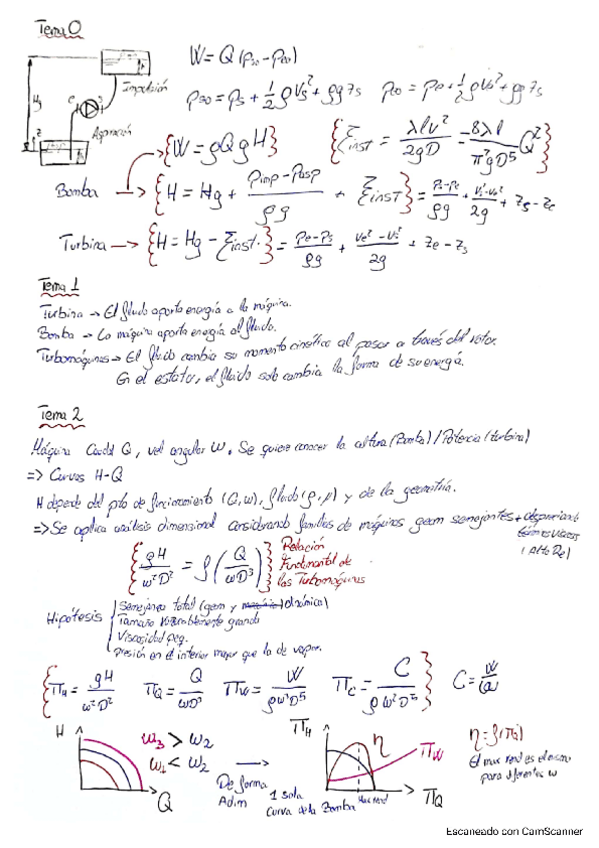 Tema 0
W = Q (p₅₀ - pₑ₀)
Impulsión
pₛ₀ = pₛ + ½ ρVₛ² + ρg zₛ pₑ₀ = pₑ + ½ ρVₑ² + ρg zₑ
Hg
e
s
Aspiración
{W = ρQgH}
{Σinst = λlv²/2gD = 8λl/π²gD⁵ Q²}
Bomba → {H = Hg + (pimp - pasp)/ρg + Σinst} = (pₛ - pₑ)/ρg + (Vₛ² - Vₑ²)/2g + zₛ - zₑ
Turbina → {H = Hg - Σinst.} = (pₑ - pₛ)/ρg + (Vₑ² - Vₛ²)/2g + zₑ - zₛ
Tema 1
Turbina → El fluido aporta energía a la máquina.
Bomba → La máquina aporta energía al fluido.
Turbomáquinas → El fluido cambia su momento cinético al pasar a través del rotor.
En el estator, el fluido solo cambia la forma de su energía.
Tema 2
Máquina Caudal Q, vel angular ω. Se quiere conocer la altura (Bomba) / Potencia (turbina)
=> Curvas H-Q
H depende del pto de funcionamiento (Q, ω), fluido (ρ, μ) y de la geometría.
=> Se aplica análisis dimensional considerando familias de máquinas geom semejantes + despreciando
términos viscosos
(Alto Re)
{gH/ω²D² = f(Q/ωD³)} Relación
Fundamental de
las Turbomáquinas
Hipótesis
Semejanza total (geom y dinámica)
Tamaño razonablemente grande
Viscosidad peq.
presión en el interior mayor que la de vapor.
{Π_H = gH/ω²D² Π_Q = Q/ωD³ Π_W = W/ρω³D⁵ Π_C = C/ρω²D⁵} C = W/ω
H
ω₃ > ω₂
ω₁ < ω₂
Q
De forma
Adim
Π_H
η
Π_W
Π_Q
Max rend
1 sola
Curva de la Bomba
η = f(Π_Q)
El max rend es el mismo
para diferentes ω
Escaneado con CamScanner